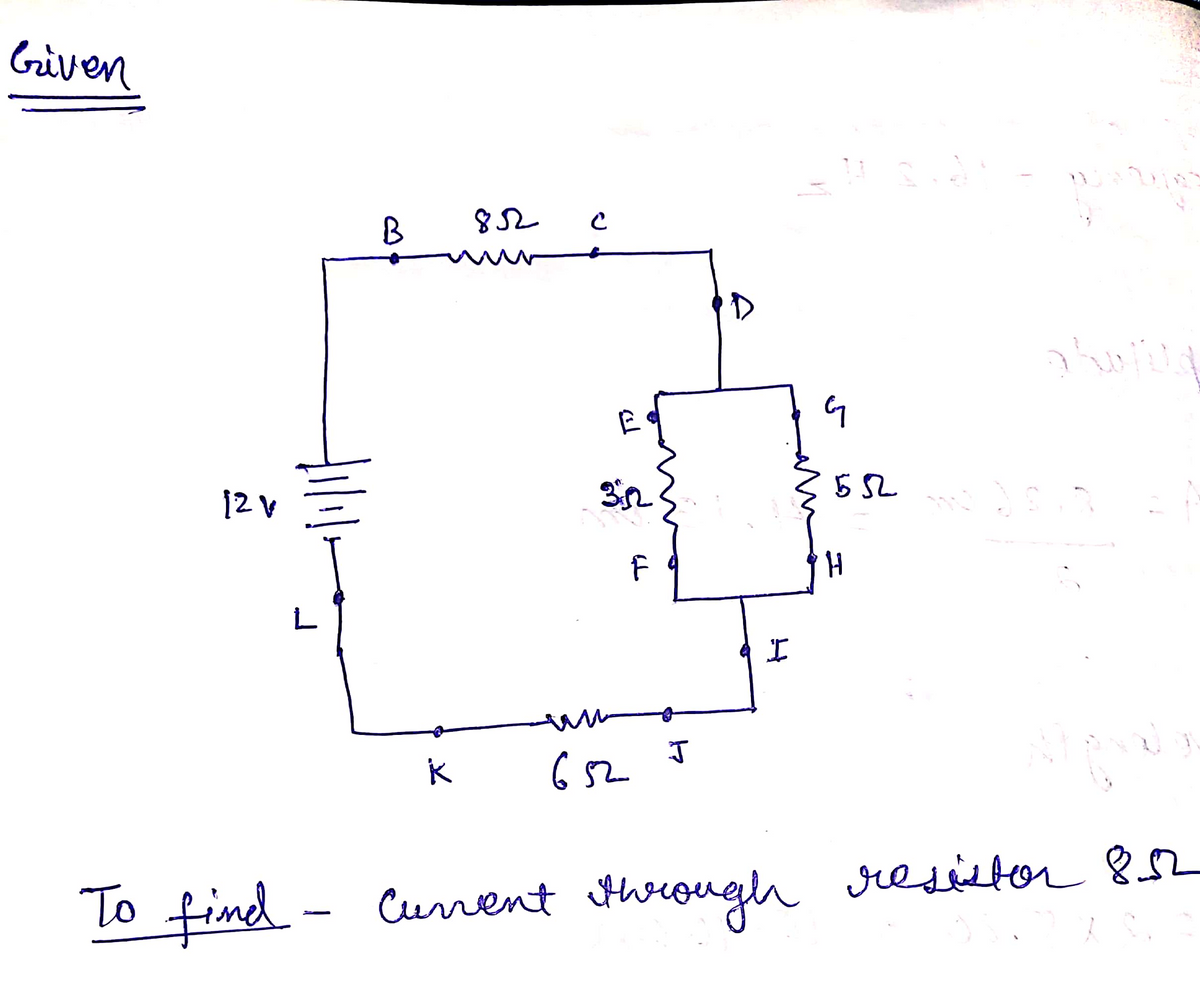 Given
B 8Ω C
D
E G
12 V 3Ω 5Ω
F H
L
I
K 6Ω J
To find - Current through resistor 8Ω